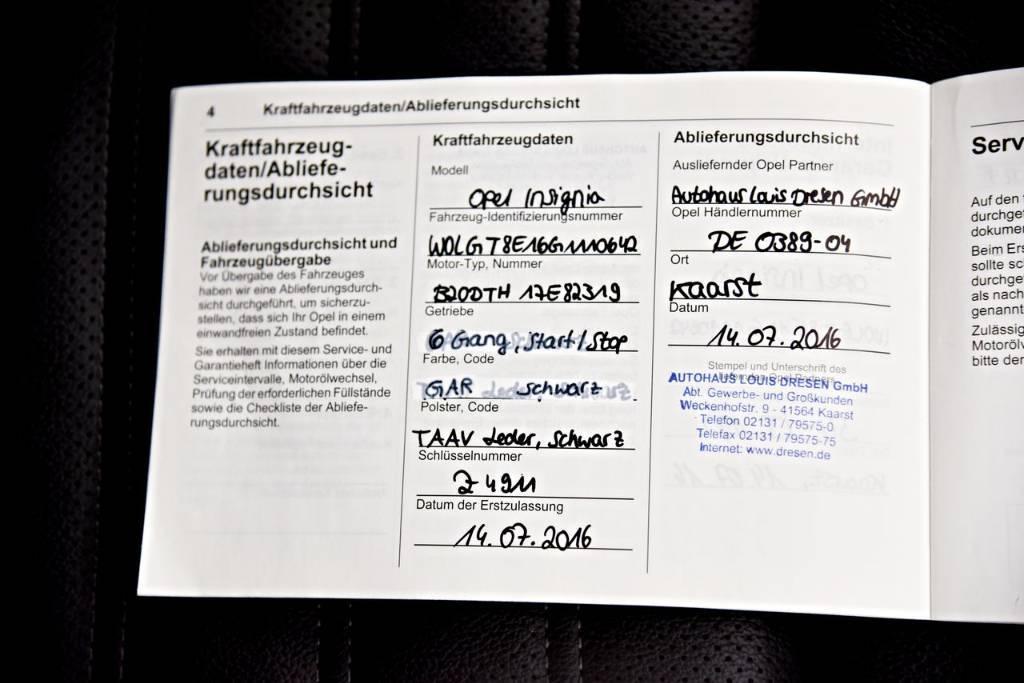 4 Kraftfahrzeugdaten/Ablieferungsdurchsicht
Kraftfahrzeug-
daten/Abliefe-
rungsdurchsicht
Ablieferungsdurchsicht und
Fahrzeugübergabe
Vor Übergabe des Fahrzeuges
haben wir eine Ablieferungsdurch-
sicht durchgeführt, um sicherzu-
stellen, dass sich Ihr Opel in einem
einwandfreien Zustand befindet.
Sie erhalten mit diesem Service- und
Garantieheft Informationen über die
Serviceintervalle, Motorölwechsel,
Prüfung der erforderlichen Füllstände
sowie die Checkliste der Abliefe-
rungsdurchsicht.
Kraftfahrzeugdaten
Modell
Opel Insignia
Fahrzeug-Identifizierungsnummer
W0LGT8E16G1110642
Motor-Typ, Nummer
B20DTH 17E82319
Getriebe
6 Gang, Start/Stop
Farbe, Code
GAR schwarz
Polster, Code
TAAV Leder, schwarz
Schlüsselnummer
Z 4911
Datum der Erstzulassung
14.07.2016
Ablieferungsdurchsicht
Ausliefernder Opel Partner
Autohaus Louis Dresen GmbH
Opel Händlernummer
DE 0389-04
Ort
Kaarst
Datum
14.07.2016
Stempel und Unterschrift des
AUTOHAUS LOUIS DRESEN GmbH
Abt. Gewerbe- und Großkunden
Weckenhofstr. 9 - 41564 Kaarst
Telefon 02131 / 79575-0
Telefax 02131 / 79575-75
Internet: www.dresen.de
Serv
Auf den
durchge
dokume
Beim Ers
sollte sc
durchge
als nach
genannt
Zulässig
Motorölv
bitte der